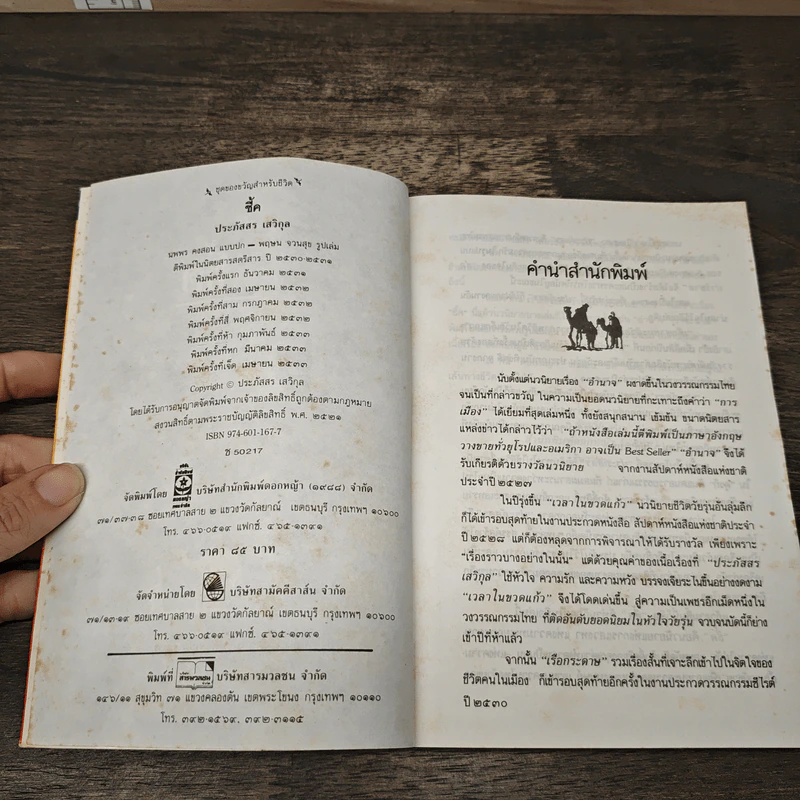 ชุดของขวัญสำหรับชีวิต
ชี้ค
ประภัสสร เสวิกุล
นพพร คงสอน แบบปก – พฤษน จวนสุข รูปเล่ม
ตีพิมพ์ในนิตยสารสตรีสาร ปี ๒๕๓๐-๒๕๓๑
พิมพ์ครั้งแรก ธันวาคม ๒๕๓๑
พิมพ์ครั้งที่สอง เมษายน ๒๕๓๒
พิมพ์ครั้งที่สาม กรกฎาคม ๒๕๓๒
พิมพ์ครั้งที่สี่ พฤศจิกายน ๒๕๓๒
พิมพ์ครั้งที่ห้า กุมภาพันธ์ ๒๕๓๓
พิมพ์ครั้งที่หก มีนาคม ๒๕๓๓
พิมพ์ครั้งที่เจ็ด เมษายน ๒๕๓๓
Copyright © ประภัสสร เสวิกุล
โดยได้รับการอนุญาตจัดพิมพ์จากเจ้าของลิขสิทธิ์ถูกต้องตามกฎหมาย
สงวนสิทธิ์ตามพระราชบัญญัติลิขสิทธิ์ พ.ศ. ๒๕๒๑
ISBN 974-601-167-7
ช 50217
จัดพิมพ์โดย บริษัทสำนักพิมพ์ดอกหญ้า (๑๙๘๘) จำกัด
๗๑/๓๗-๓๘ ซอยเทศบาลสาย ๒ แขวงวัดกัลยาณ์ เขตธนบุรี กรุงเทพฯ ๑๐๖๐๐
โทร. ๔๖๖-๐๕๑๙ แฟกซ์. ๔๖๕-๑๓๙๑
ราคา ๘๕ บาท
จัดจำหน่ายโดย บริษัทสามัคคีสาส์น จำกัด
๗๑/๑๓-๑๙ ซอยเทศบาลสาย ๒ แขวงวัดกัลยาณ์ เขตธนบุรี กรุงเทพฯ ๑๐๖๐๐
โทร. ๔๖๖-๐๕๑๙ แฟกซ์. ๔๖๕-๑๓๙๑
พิมพ์ที่ สารมวลชน บริษัทสารมวลชน จำกัด
๑๔๖/๑๑ สุขุมวิท ๗๑ แขวงคลองตัน เขตพระโขนง กรุงเทพฯ ๑๐๑๑๐
โทร. ๓๙๒-๑๕๖๙, ๓๙๒-๓๑๑๕
คำนำสำนักพิมพ์
นับตั้งแต่นวนิยายเรื่อง “อำนาจ” ผงาดขึ้นในวงวรรณกรรมไทย
จนเป็นที่กล่าวขวัญ ในความเป็นยอดนวนิยายที่กะเทาะถึงคำว่า “การ
เมือง” ได้เยี่ยมที่สุดเล่มหนึ่ง ทั้งยังสนุกสนาน เข้มข้น ขนาดนิตยสาร
แหล่งข่าวได้กล่าวไว้ว่า “ถ้าหนังสือเล่มนี้ตีพิมพ์เป็นภาษาอังกฤษ
วางขายทั่วยุโรปและอเมริกา อาจเป็น Best Seller” “อำนาจ” จึงได้
รับเกียรติด้วยรางวัลนวนิยาย จากงานสัปดาห์หนังสือแห่งชาติ
ประจำปี ๒๕๒๗
ในปีรุ่งขึ้น “เวลาในขวดแก้ว” นวนิยายชีวิตวัยรุ่นอันลุ่มลึก
ก็ได้เข้ารอบสุดท้ายในงานประกวดหนังสือ สัปดาห์หนังสือแห่งชาติประจำ
ปี ๒๕๒๘ แต่ก็ต้องหลุดจากการพิจารณาให้ได้รับรางวัล เพียงเพราะ
“เรื่องราวบางอย่างในนั้น” แต่ด้วยคุณค่าของเนื้อเรื่องที่ “ประภัสสร
เสวิกุล” ใช้หัวใจ ความรัก และความหวัง บรรจงเจียระไนขึ้นอย่างงดงาม
“เวลาในขวดแก้ว” จึงได้โดดเด่นขึ้น สู่ความเป็นเพชรอีกเม็ดหนึ่งใน
วงวรรณกรรมไทย ที่ติดอันดับยอดนิยมในหัวใจวัยรุ่น จวบจนบัดนี้ก็ย่าง
เข้าปีที่ห้าแล้ว
จากนั้น “เรือกระดาษ” รวมเรื่องสั้นที่เจาะลึกเข้าไปในจิตใจของ
ชีวิตคนในเมือง ก็เข้ารอบสุดท้ายอีกครั้งในงานประกวดวรรณกรรมซีไรต์
ปี ๒๕๓๐